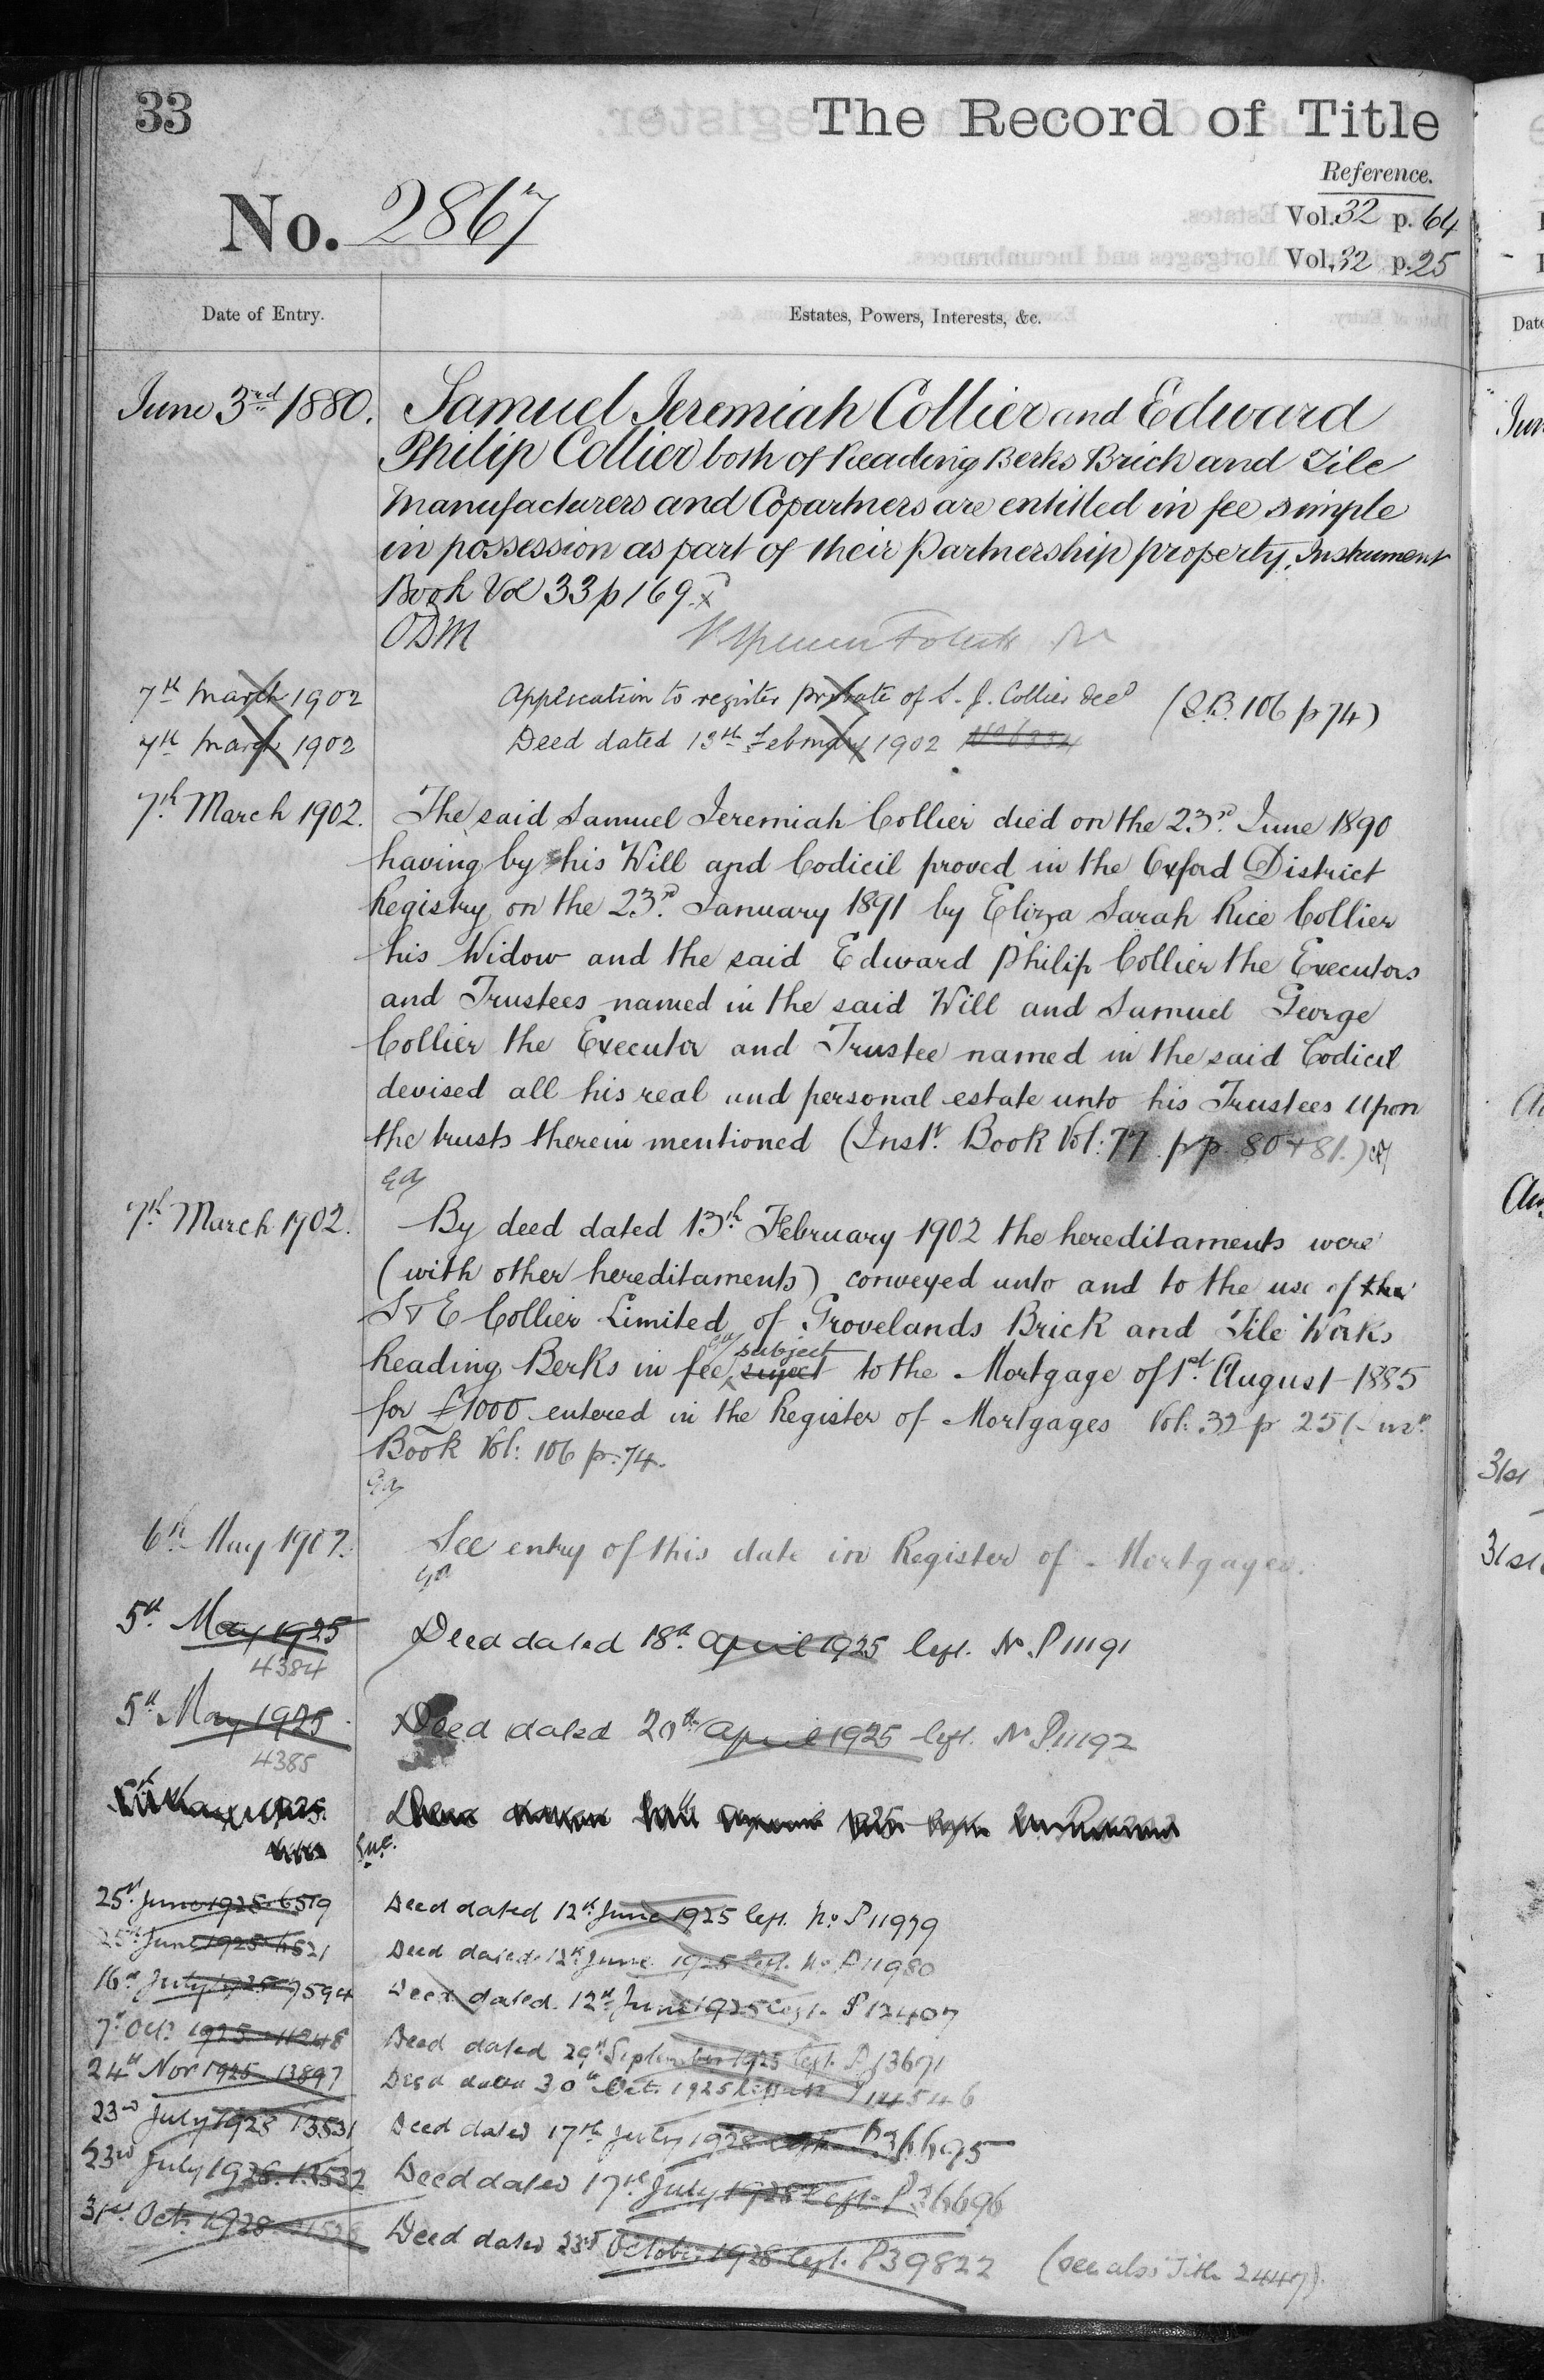 33
The Record of Title
Reference.
No. 2867
Vol. 32 p. 64
Vol. 32 p. 25
Date of Entry.
Estates, Powers, Interests, &c.
June 3rd 1880.
Samuel Jeremiah Collier and Edward
Philip Collier both of Reading Berks Brick and Tile
Manufacturers and Copartners are entitled in fee simple
in possession as part of their Partnership property. Instrument
Book Vol 33 p 169.
ODM
7th March 1902
Application to register probate of S. J. Collier decd (I.B. 106 p 74)
7th March 1902
Deed dated 13th February 1902
7th March 1902.
The said Samuel Jeremiah Collier died on the 23rd June 1890
having by his Will and Codicil proved in the Oxford District
Registry on the 23rd January 1891 by Eliza Sarah Rice Collier
his Widow and the said Edward Philip Collier the Executors
and Trustees named in the said Will and Samuel George
Collier the Executor and Trustee named in the said Codicil
devised all his real and personal estate unto his Trustees upon
the trusts therein mentioned (Instr. Book Vol: 77 pp. 80 + 81.)
7th March 1902.
By deed dated 13th February 1902 the hereditaments were
(with other hereditaments) conveyed unto and to the use of the
S & E Collier Limited of Grovelands Brick and Tile Works
Reading Berks in fee subject to the Mortgage of 1st August 1885
for £1000 entered in the Register of Mortgages Vol: 32 p 25
Book Vol: 106 p. 74.
6th May 1902.
See entry of this date in Register of Mortgages.
5th May 1925
4384
Deed dated 18th April 1925 left. No. P11191
5th May 1925
4385
Deed dated 20th April 1925 left. No. P11192
25th June 1925 6519
Deed dated 12th June 1925 left. No. P11979
25th June 1925 6521
Deed dated 12th June 1925 left. No. P11980
16th July 1925 7594
Deed dated 12th June 1925 left. P12407
7th Oct. 1925 11248
Deed dated 29th September 1925 left. P13671
24th Nov 1925 13897
Deed dated 30th Oct. 1925 P14546
23rd July 1928 13531
Deed dated 17th July 1928 left P36695
23rd July 1928 13532
Deed dated 17th July 1928 left P36696
31st Oct. 1928
Deed dated 23rd October 1928 left. P39822 (see also Title 2447).